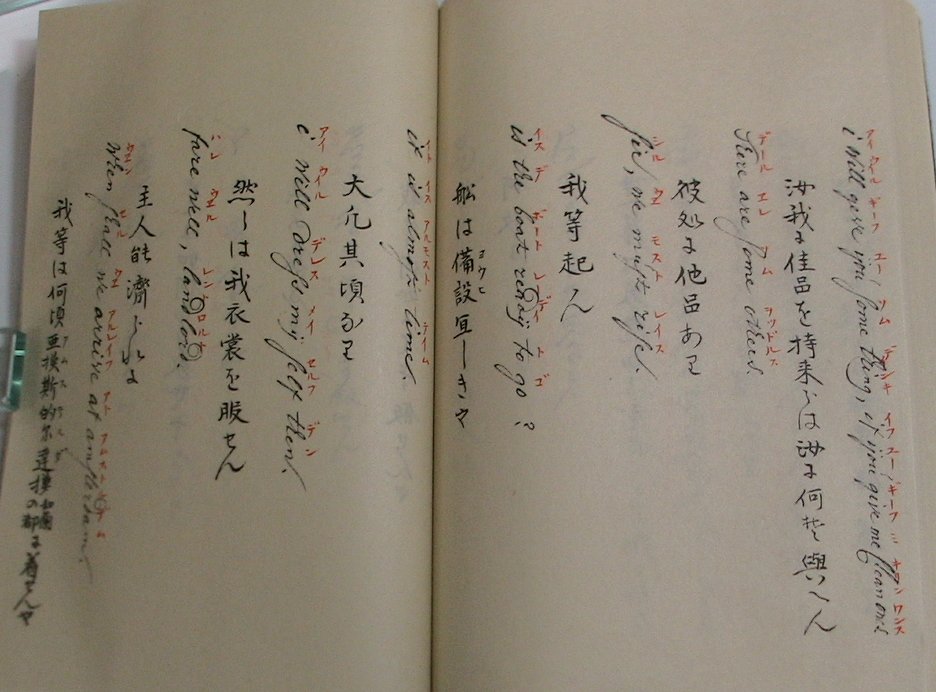 アイ ウイル ギーフ ユー ソム
i will give you some thing, if you give me clean ones
汝我に佳品を持来らは汝に何そ與へん
デール エレ ソム ヲッドルス
There are some others
彼処に他品あり
シル ウエ モスト レイス
sir, we must rise.
我等起ん
イス デ ボート レディ ト ゴ
is the boat ready to go ?
ヨウヒ
船は備設宜しきや
イト イス アルモスト テイム
it is almost time.
大凢其頃なり
アイ ウイル デレス メイ セルフ デン
i will dress my self then.
然らは我衣裳を服せん
ハレ ウエル レンドロルド
fare well, landlord.
主人能濟
ウエン セル ウエ アルレイフ アト アムステルダム
when shall we arrive at amsterdam.
我等は何頃亜摸斯的尓達摸の都に着せんや